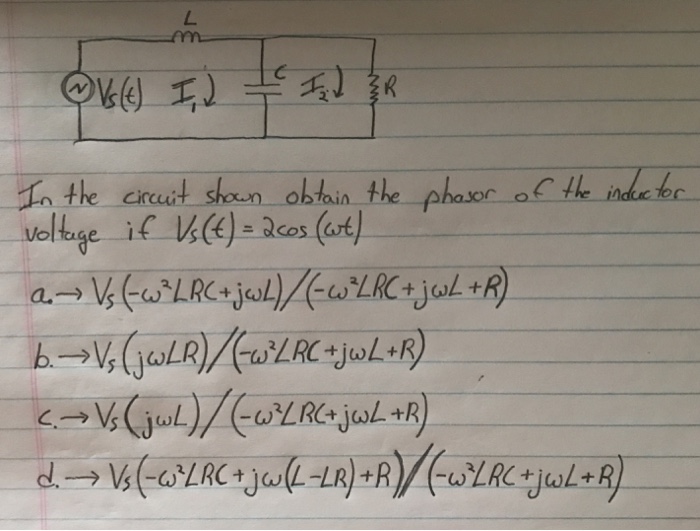 L
Vs(t) I₁ C I₂ R
In the circuit shown obtain the phasor of the inductor
voltage if Vs(t) = 2cos(ωt)
a.→ Vs(-ω²LRC+jωL)/(-ω²LRC+jωL+R)
b.→ Vs(jωLR)/(-ω²LRC+jωL+R)
c.→ Vs(jωL)/(-ω²LRC+jωL+R)
d.→ Vs(-ω²LRC+jω(L-LR)+R)/(-ω²LRC+jωL+R)